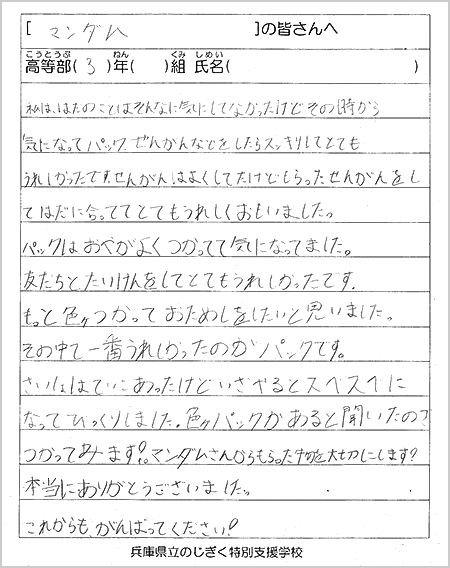 [ マンダム ]の皆さんへ
こうとうぶ ねん くみ しめい
高等部(3)年( )組 氏名( )
私は、はだのことはそんなに気にしてなかったけどその時から
気になってパック、せんがんなどをしたらスッキリしてとても
うれしかったです。せんがんはよくしてたけどもらったせんがんをし
てはだに合っててとてもうれしくおもいました。
パックはおべがよくつかってて気になってました。
友だちとたいけんをしてとてもうれしかったです。
もっと色々つかっておためしをしたいと思いました。
その中で一番うれしかったのがパックです。
さいしょはていこあったけどいざやるとスベスベに
なってびっくりしました。色々パックがあると聞いたので
つかってみます!。マンダムさんからもらった物を大切にします?
本当にありがとうございました。
これからも、がんばってください!
兵庫県立のじぎく特別支援学校